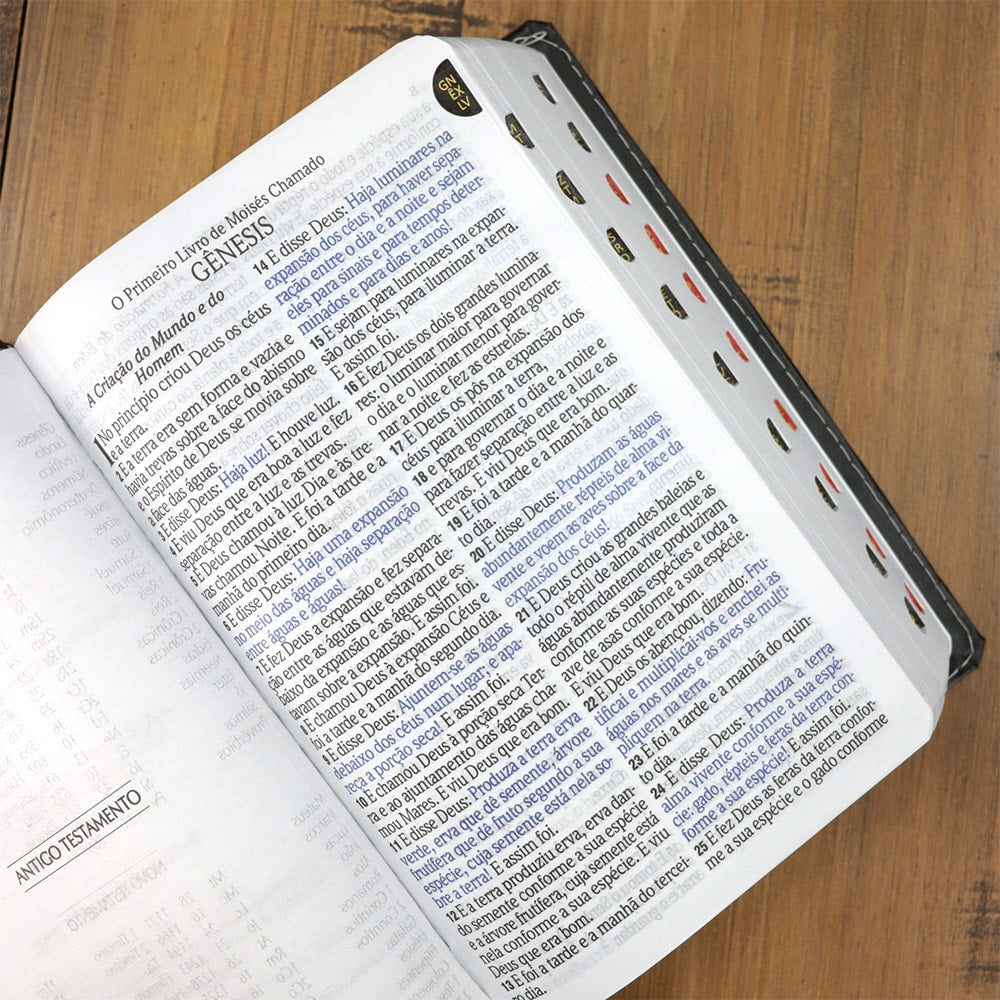 ANTIGO TESTAMENTO
O Primeiro Livro de Moisés Chamado
GÊNESIS
A Criação do Mundo e do
Homem
1 No princípio criou Deus os céus
e a terra.
2 E a terra era sem forma e vazia e
havia trevas sobre a face do abismo
e o Espírito de Deus se movia sobre
a face das águas.
3 E disse Deus: Haja luz! E houve luz.
4 E viu Deus que era boa a luz e fez
separação entre a luz e as trevas.
5 E Deus chamou à luz Dia e às tre-
vas chamou Noite. E foi a tarde e a
manhã do primeiro dia.
6 E disse Deus: Haja uma expansão
no meio das águas e haja separação
entre águas e águas!
7 E fez Deus a expansão e fez separa-
ção entre as águas que estavam de-
baixo da expansão e as águas que es-
tavam sobre a expansão. E assim foi.
8 E chamou Deus à expansão Céus e
foi a tarde e a manhã do segundo dia.
9 E disse Deus: Ajuntem-se as águas
debaixo dos céus num lugar; e apa-
reça a porção seca! E assim foi.
10 E chamou Deus à porção seca Ter-
ra e ao ajuntamento das águas cha-
mou Mares. E viu Deus que era bom.
11 E disse Deus: Produza a terra erva
verde, erva que dê semente, árvore
frutífera que dê fruto segundo a sua
espécie, cuja semente está nela so-
bre a terra! E assim foi.
12 E a terra produziu erva, erva dan-
do semente conforme a sua espécie
e a árvore frutífera, cuja semente está
nela conforme a sua espécie. E viu
Deus que era bom.
13 E foi a tarde e a manhã do tercei-
ro dia.
14 E disse Deus: Haja luminares na
expansão dos céus, para haver sepa-
ração entre o dia e a noite e sejam
eles para sinais e para tempos deter-
minados e para dias e anos!
15 E sejam para luminares na expan-
são dos céus, para iluminar a terra.
E assim foi.
16 E fez Deus os dois grandes lumina-
res: o luminar maior para governar
o dia e o luminar menor para gover-
nar a noite e fez as estrelas.
17 E Deus os pôs na expansão dos
céus para iluminar a terra,
18 e para governar o dia e a noite e
para fazer separação entre a luz e as
trevas. E viu Deus que era bom.
19 E foi a tarde e a manhã do quar-
to dia.
20 E disse Deus: Produzam as águas
abundantemente répteis de alma vi-
vente e voem as aves sobre a face da
expansão dos céus!
21 E Deus criou as grandes baleias e
todo o réptil de alma vivente que as
águas abundantemente produziram
conforme as suas espécies e toda a
ave de asas conforme a sua espécie.
E viu Deus que era bom.
22 E Deus os abençoou, dizendo: Fru-
tificai e multiplicai-vos e enchei as
águas nos mares e as aves se multi-
pliquem na terra.
23 E foi a tarde e a manhã do quin-
to dia.
24 E disse Deus: Produza a terra
alma vivente conforme a sua espé-
cie: gado, répteis e feras da terra con-
forme a sua espécie! E assim foi.
25 E fez Deus as feras da terra confor-
me a sua espécie e o gado conforme
GN
EX
LV